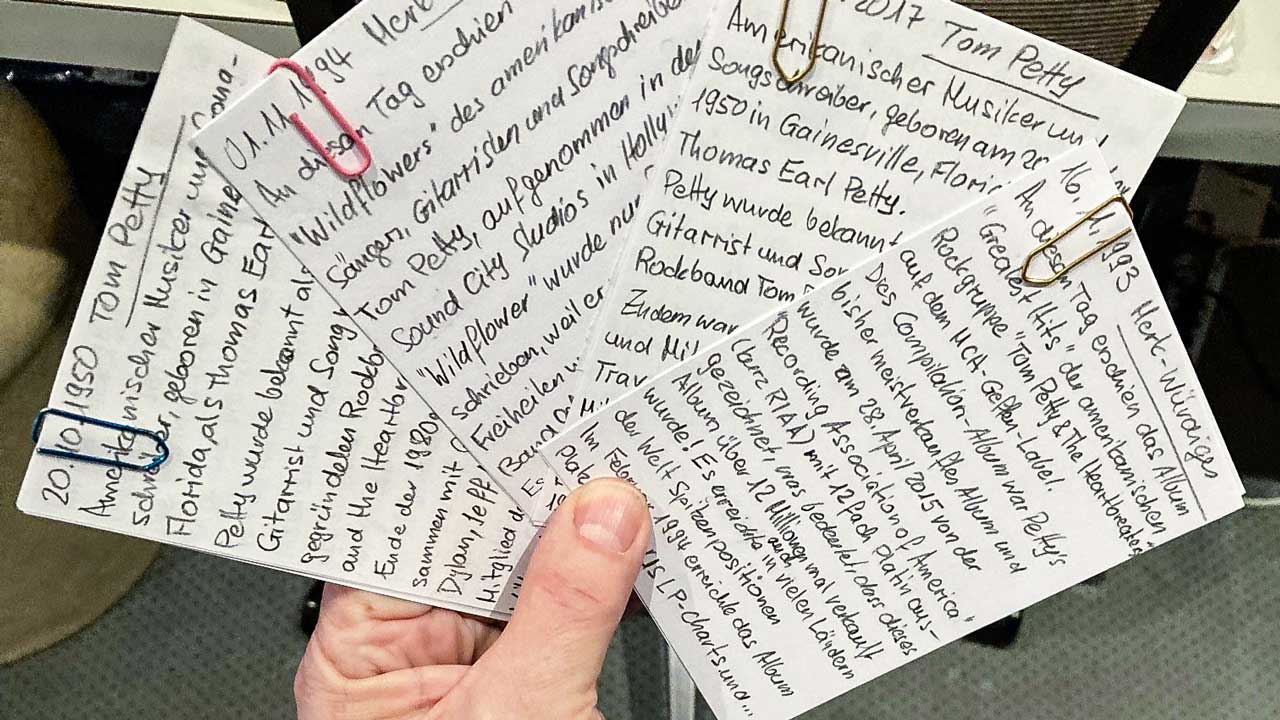 20.10.1950 Tom Petty
Amerikanischer Musiker und Song-
schreiber, geboren in Gaine
Florida, als Thomas Earl
Petty wurde bekannt als
Gitarrist und Song
gegründeten Rockb
and the Heartbr
Ende der 1980
sammen mit
Dylan, Jeff
Mitglied d
01.11.1994 Merk
An diesem Tag erschien
"Wildflowers" des amerikanisc
Sängers, Gitarristen und Songschreiber
Tom Petty, aufgenommen in de
Sound City Studios in Holly
"Wildflower" wurde nu
schrieben, weil er
Freiheiten
Band
Es
2017 Tom Petty
Amerikanischer Musiker un
Songschreiber, geboren am 20
1950 in Gainesville, Flori
Thomas Earl Petty.
Petty wurde bekannt
Gitarrist und So
Rockband Tom
Zudem war
und Mi
Trav
16.11.1993 Merk-Würdiges
An diesem Tag erschien das Album
"Greatest Hits" der amerikanischen
Rockgruppe "Tom Petty & The Heartbreakers
auf dem MCA-Geffen-Label.
Das Compilation-Album war Petty's
bisher meistverkauftes Album und
wurde am 28. April 2015 von der
"Recording Association of America"
(kurz RIAA) mit 12fach Platin aus-
gezeichnet, was bedeutet, dass dieses
Album über 12 Millionen mal verkauft
wurde! Es erreichte auch in vielen Ländern
der Welt Spitzenpositionen
Im Februar 1994 erreichte das Album
Plat US LP-Charts und...